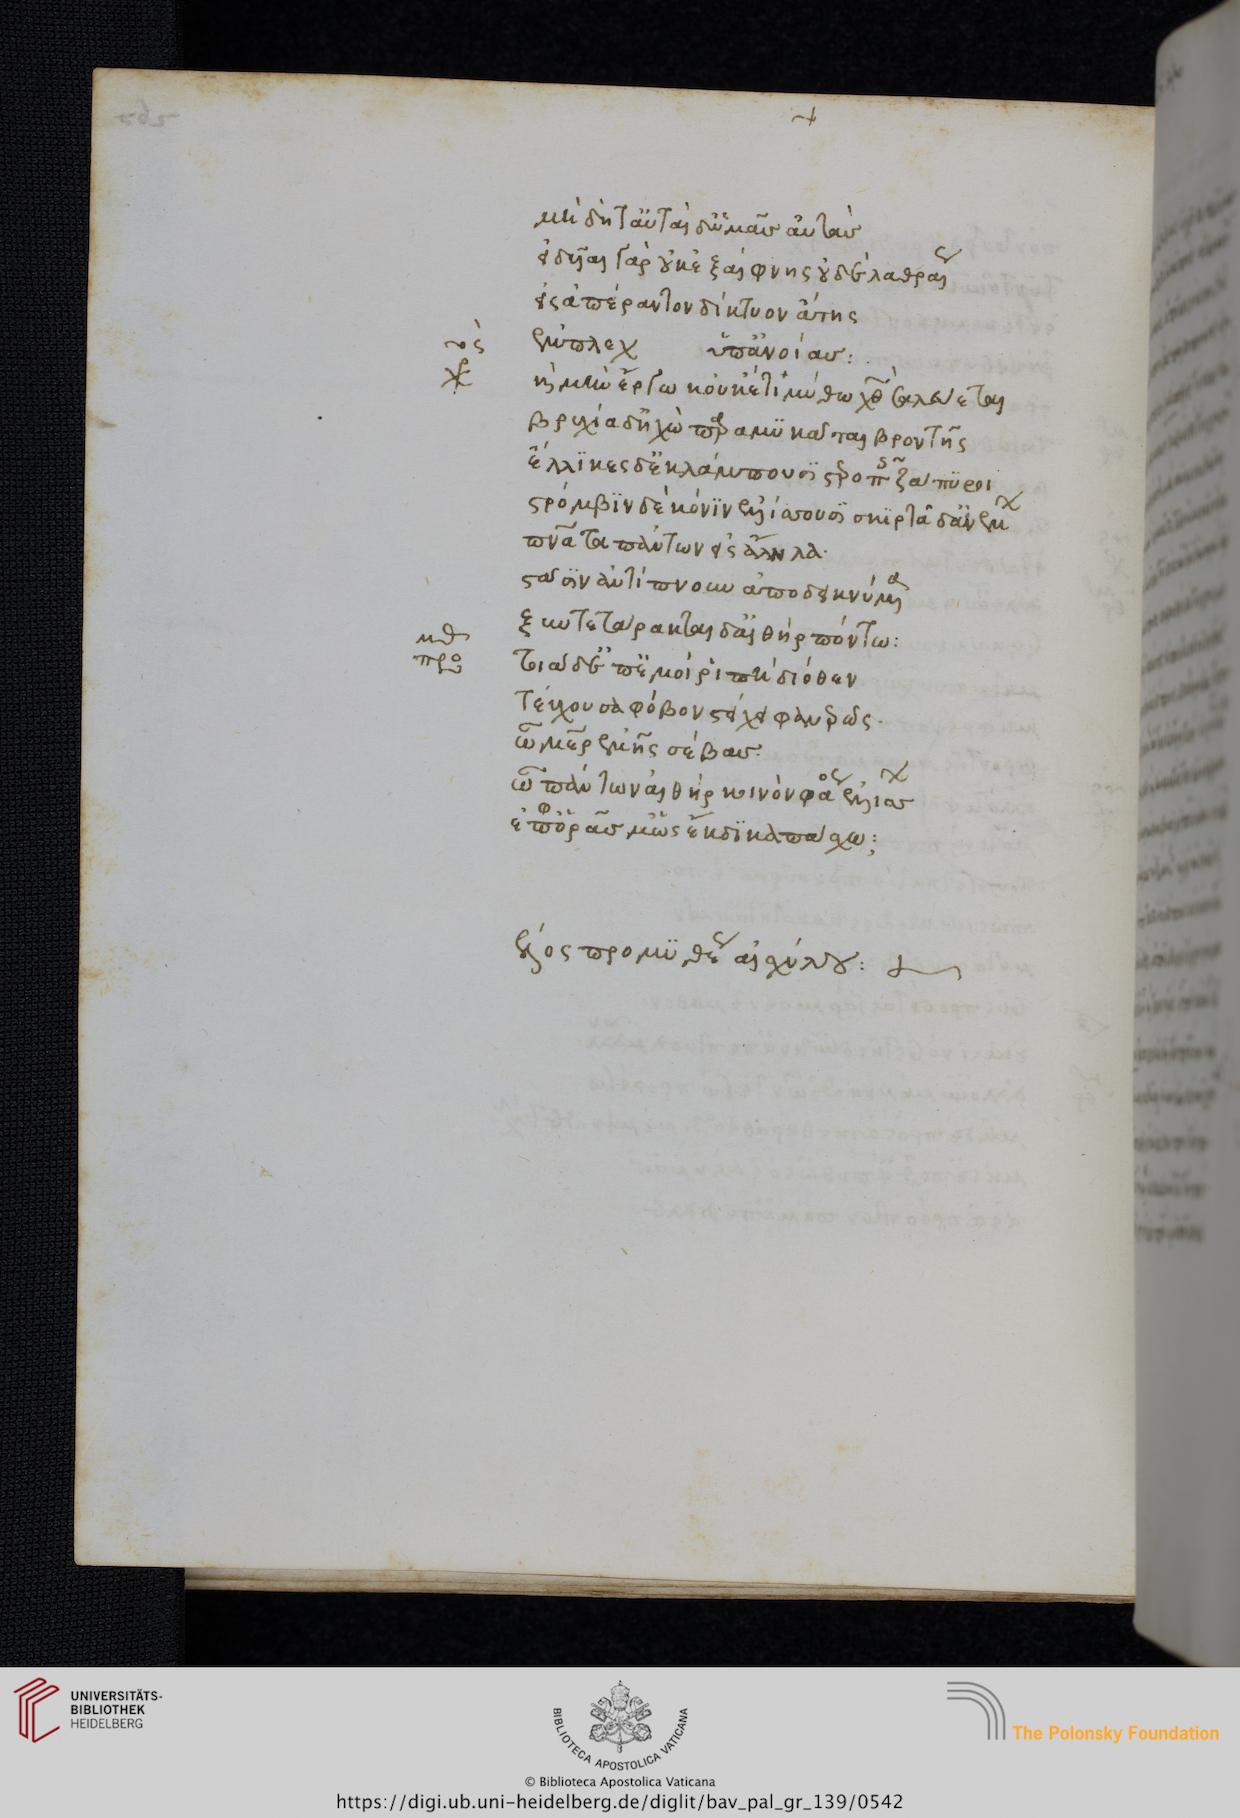 μὴ δῆτ' αὐταὶ δ' ὑμᾶς αὐτάς
εἰδυῖαι γὰρ κοὐκ ἐξαίφνης οὐδὲ λαθραίως
εἰς ἀπέραντον δίκτυον ἄτης
ὑπ' ἀνοίας:
καὶ μὴν ἔργω κοὐκέτι μύθω χθὼν σεσάλευται
βρυχία δ' ἠχὼ παραμυκᾶται βροντῆς
ἕλικες δ' ἐκλάμπουσι στεροπῆς ζάπυροι
στρόμβοι δὲ κόνιν εἱλίσσουσι σκιρτᾷ δ' ἀνέμων
πνεύματα πάντων εἰς ἄλληλα
στάσιν ἀντίπνουν ἀποδεικνύμενα
ξυντετάρακται δ' αἰθὴρ πόντω:
τοιάδ' ἐπ' ἐμοὶ ῥιπὴ διόθεν
τεύχουσα φόβον στείχει φανερῶς.
ὦ μητρὸς ἐμῆς σέβας
ὦ πάντων αἰθὴρ κοινὸν φάος εἱλίσσων
ἐσορᾷς μ' ὡς ἔκδικα πάσχω:
τέλος προμηθέως αἰσχύλου:
UNIVERSITÄTS-
BIBLIOTHEK
HEIDELBERG
BIBLIOTECA APOSTOLICA VATICANA
The Polonsky Foundation
© Biblioteca Apostolica Vaticana
https://digi.ub.uni-heidelberg.de/diglit/bav_pal_gr_139/0542